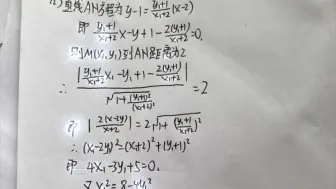 (2) 直线AN方程为 y-1=\frac{y_1+1}{x_1+2}(x-2)
即 \frac{y_1+1}{x_1+2}x-y+1-\frac{2(y_1+1)}{x_1+2}=0.
则M(x_1,y_1)到AN距离为2
∴ \frac{|\frac{y_1+1}{x_1+2}x_1-y_1+1-\frac{2(y_1+1)}{x_1+2}|}{\sqrt{1+\frac{(y_1+1)^2}{(x_1+2)^2}}}=2
即 |\frac{2(x-2y)}{x+2}|=2\sqrt{1+(\frac{y_1+1}{x_1+2})^2}
∴ (x_1-2y_1)^2=(x_1+2)^2+(y_1+1)^2
即 4x_1-3y_1+5=0.
又 x_1^2=8-4y_1^2